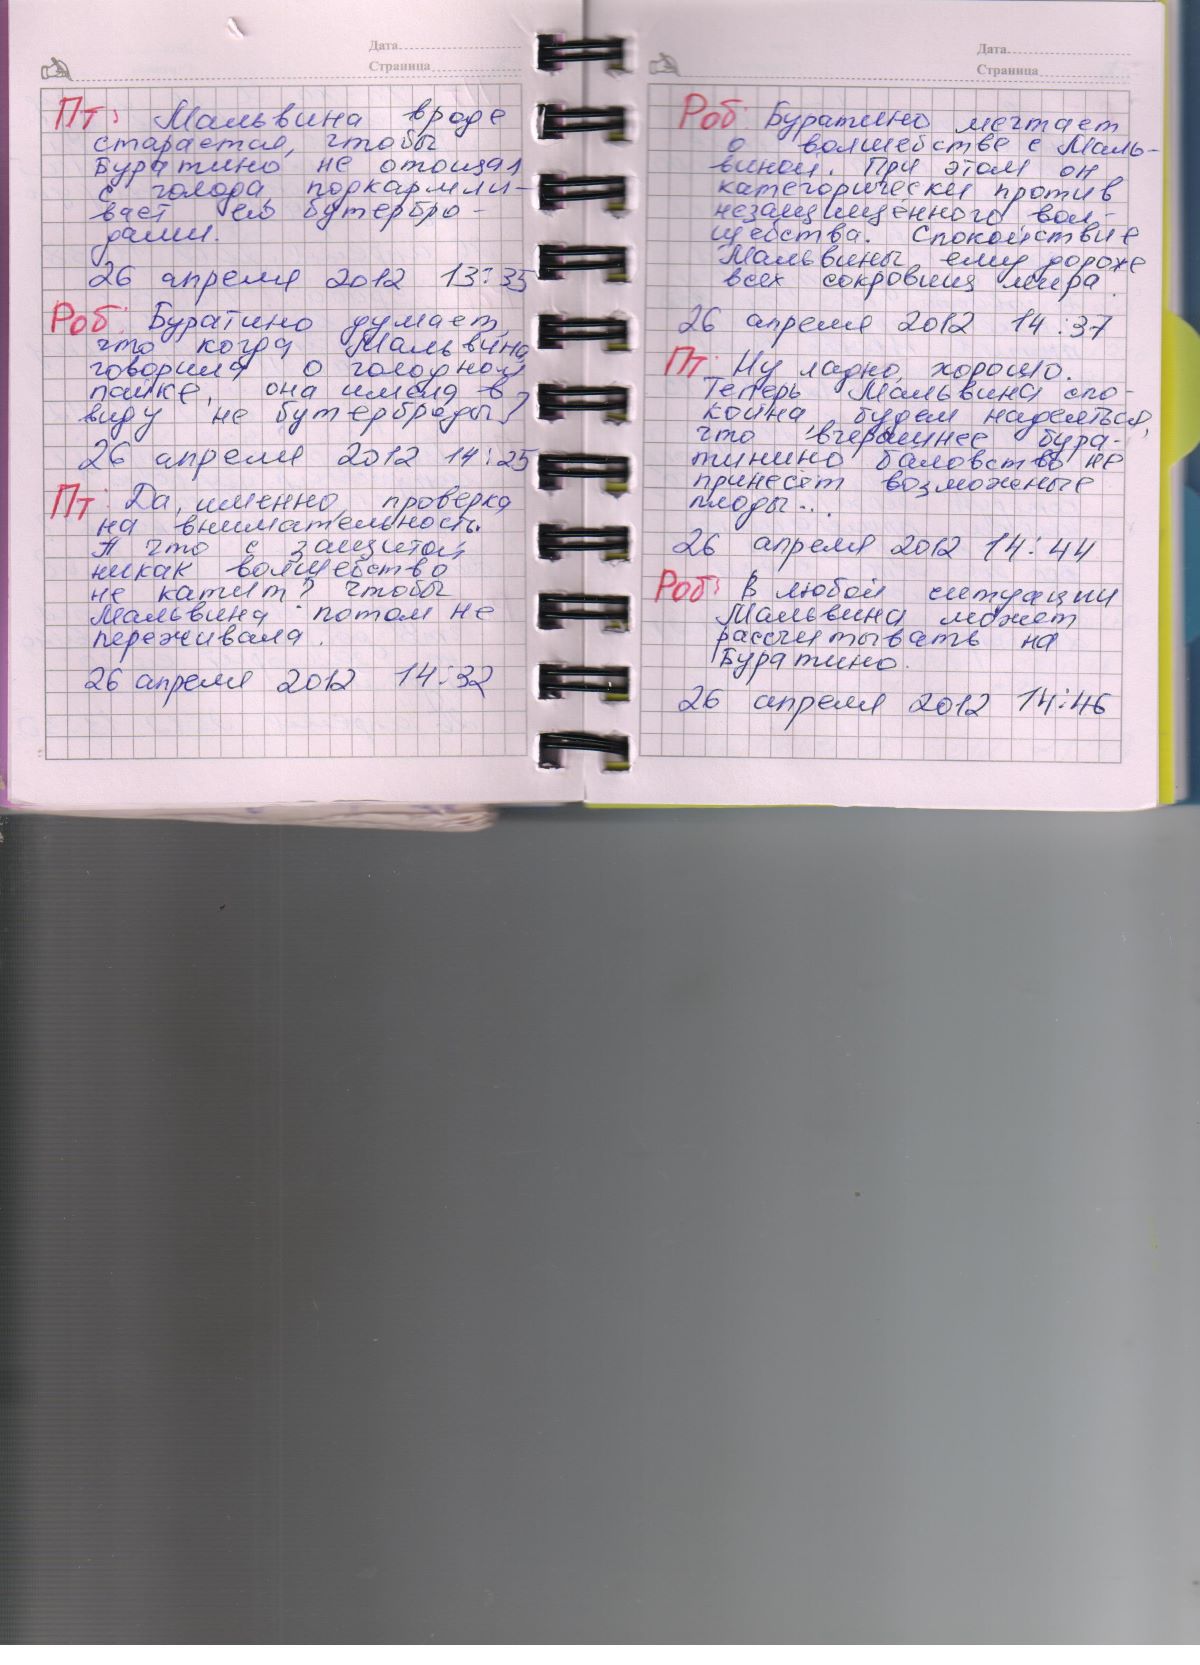 Дата
Страница
Пт: Мальвина вроде
старается, чтобы
Буратино не отощал
с голода, подкармли-
вает его бутербро-
дами.
26 апреля 2012 13:35
Роб: Буратино думает,
что когда Мальвина
говорила о голодном
пайке, она имела в
виду не бутерброды?
26 апреля 2012 14:25
Пт: Да, именно, проверка
на внимательность.
А что с защитой
никак волшебство
не катит? Чтобы
Мальвина потом не
переживала.
26 апреля 2012 14:32
Дата
Страница
Роб: Буратино мечтает
о волшебстве с Маль-
виной. При этом он
категорически против
незащищённого вол-
шебства. Спокойствие
Мальвины ему дороже
всех сокровищ мира.
26 апреля 2012 14:37
Пт: Ну ладно, хорошо.
Теперь Мальвина спо-
койна будем надеяться,
что вчерашнее бура-
тинино баловство не
принесёт возможные
плоды...
26 апреля 2012 14:44
Роб: В любой ситуации
Мальвина может
рассчитывать на
Буратино.
26 апреля 2012 14:46